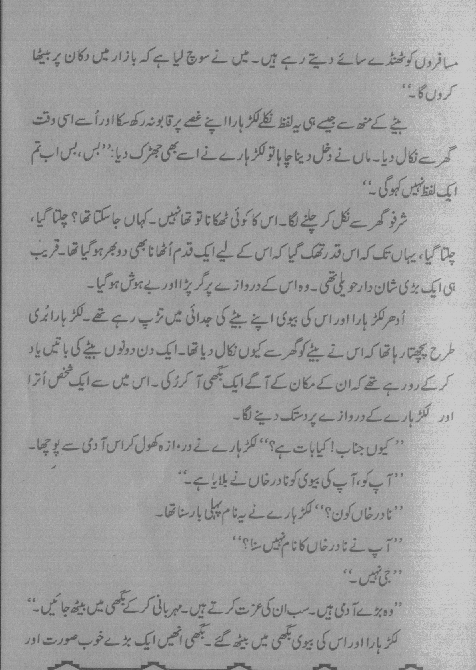 مسافروں کو ٹھنڈے سائے دیتے رہے ہیں۔ میں نے سوچ لیا ہے کہ بازار میں دکان پر بیٹھا
کروں گا۔‘‘
بیٹے کے منھ سے جیسے ہی یہ لفظ نکلے لکڑہارا اپنے غصے پر قابو نہ رکھ سکا اور اُسے اسی وقت
گھر سے نکال دیا۔ ماں نے دخل دینا چاہا تو لکڑہارے نے اسے بھی جھڑک دیا: ’’بس، بس اب تم
ایک لفظ نہیں کہو گی۔‘‘
شرفو گھر سے نکل کر چلنے لگا۔ اس کا کوئی ٹھکانا تو تھا نہیں۔ کہاں جا سکتا تھا؟ چلتا گیا،
چلتا گیا، یہاں تک کہ اس قدر تھک گیا کہ اس کے لیے ایک قدم اُٹھانا بھی دوبھر ہو گیا تھا۔ قریب
ہی ایک بڑی شان دار حویلی تھی۔ وہ اس کے دروازے پر گر پڑا اور بے ہوش ہو گیا۔
اُدھر لکڑہارا اور اس کی بیوی اپنے بیٹے کی جدائی میں تڑپ رہے تھے۔ لکڑہارا بُری
طرح پچھتا رہا تھا کہ اس نے بیٹے کو گھر سے کیوں نکال دیا تھا۔ ایک دن دونوں بیٹے کی باتیں یاد
کر کے رو رہے تھے کہ ان کے مکان کے آگے ایک بگھی آ کر رُکی۔ اس میں سے ایک شخص اُترا
اور لکڑہارے کے دروازے پر دستک دینے لگا۔
’’کیوں جناب! کیا بات ہے؟‘‘ لکڑہارے نے دروازہ کھول کر اس آدمی سے پوچھا۔
’’آپ کو، آپ کی بیوی کو نادر خاں نے بلایا ہے۔‘‘
’’نادر خاں کون؟‘‘ لکڑہارے نے یہ نام پہلی بار سنا تھا۔
’’آپ نے نادر خاں کا نام نہیں سنا؟‘‘
’’جی نہیں۔‘‘
’’وہ بڑے آدمی ہیں۔ سب ان کی عزت کرتے ہیں۔ مہربانی کر کے بگھی میں بیٹھ جائیں۔‘‘
لکڑہارا اور اس کی بیوی بگھی میں بیٹھ گئے۔ بگھی انھیں ایک بڑے خوب صورت اور